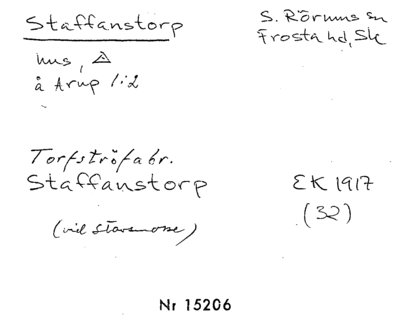 Staffanstorp
S. Rörums sn
Frosta hd, Sk
hus,
å Arup 1:2
Torfströfabr.
Staffanstorp
EK 1917
(32)
(vid Storamosse)
Nr 15206